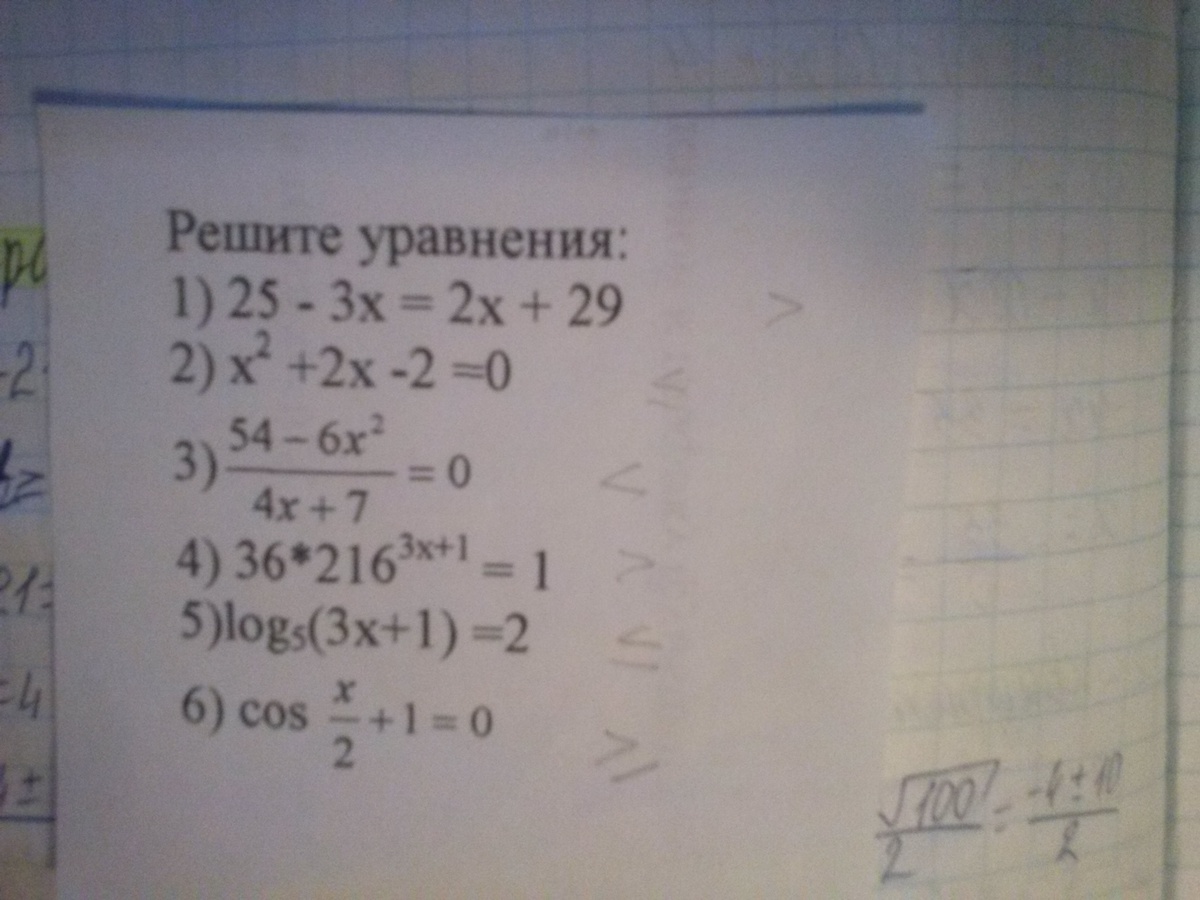 Решите уравнения:
1) 25 - 3x = 2x + 29 >
2) x² +2x -2 =0 ≤
3) (54 – 6x²)/(4x + 7) = 0 <
4) 36*216^(3x+1) = 1 >
5)log₅(3x+1) =2 ≤
6) cos x/2 + 1 = 0 ≥
√100/2 = (-4±10)/2
-2
21=
=4